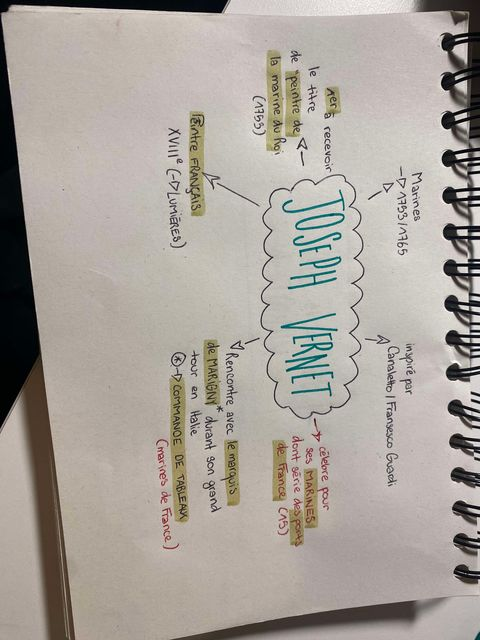 JOSEPH VERNET
1er à recevoir
le titre
de "peintre de
la marine du Roi
(1753)
Marines
-> 1753/1765
inspiré par
Canaletto/Fransesco Guardi
célèbre pour
ses MARINES
dont série des ports
de France (15)
Rencontre avec le marquis
de MARIGNY* durant son grand
tour en Italie
* -> COMMANDE DE TABLEAUX
(marines de France)
Peintre FRANÇAIS
XVIIIe (-> LUMIÈRES)